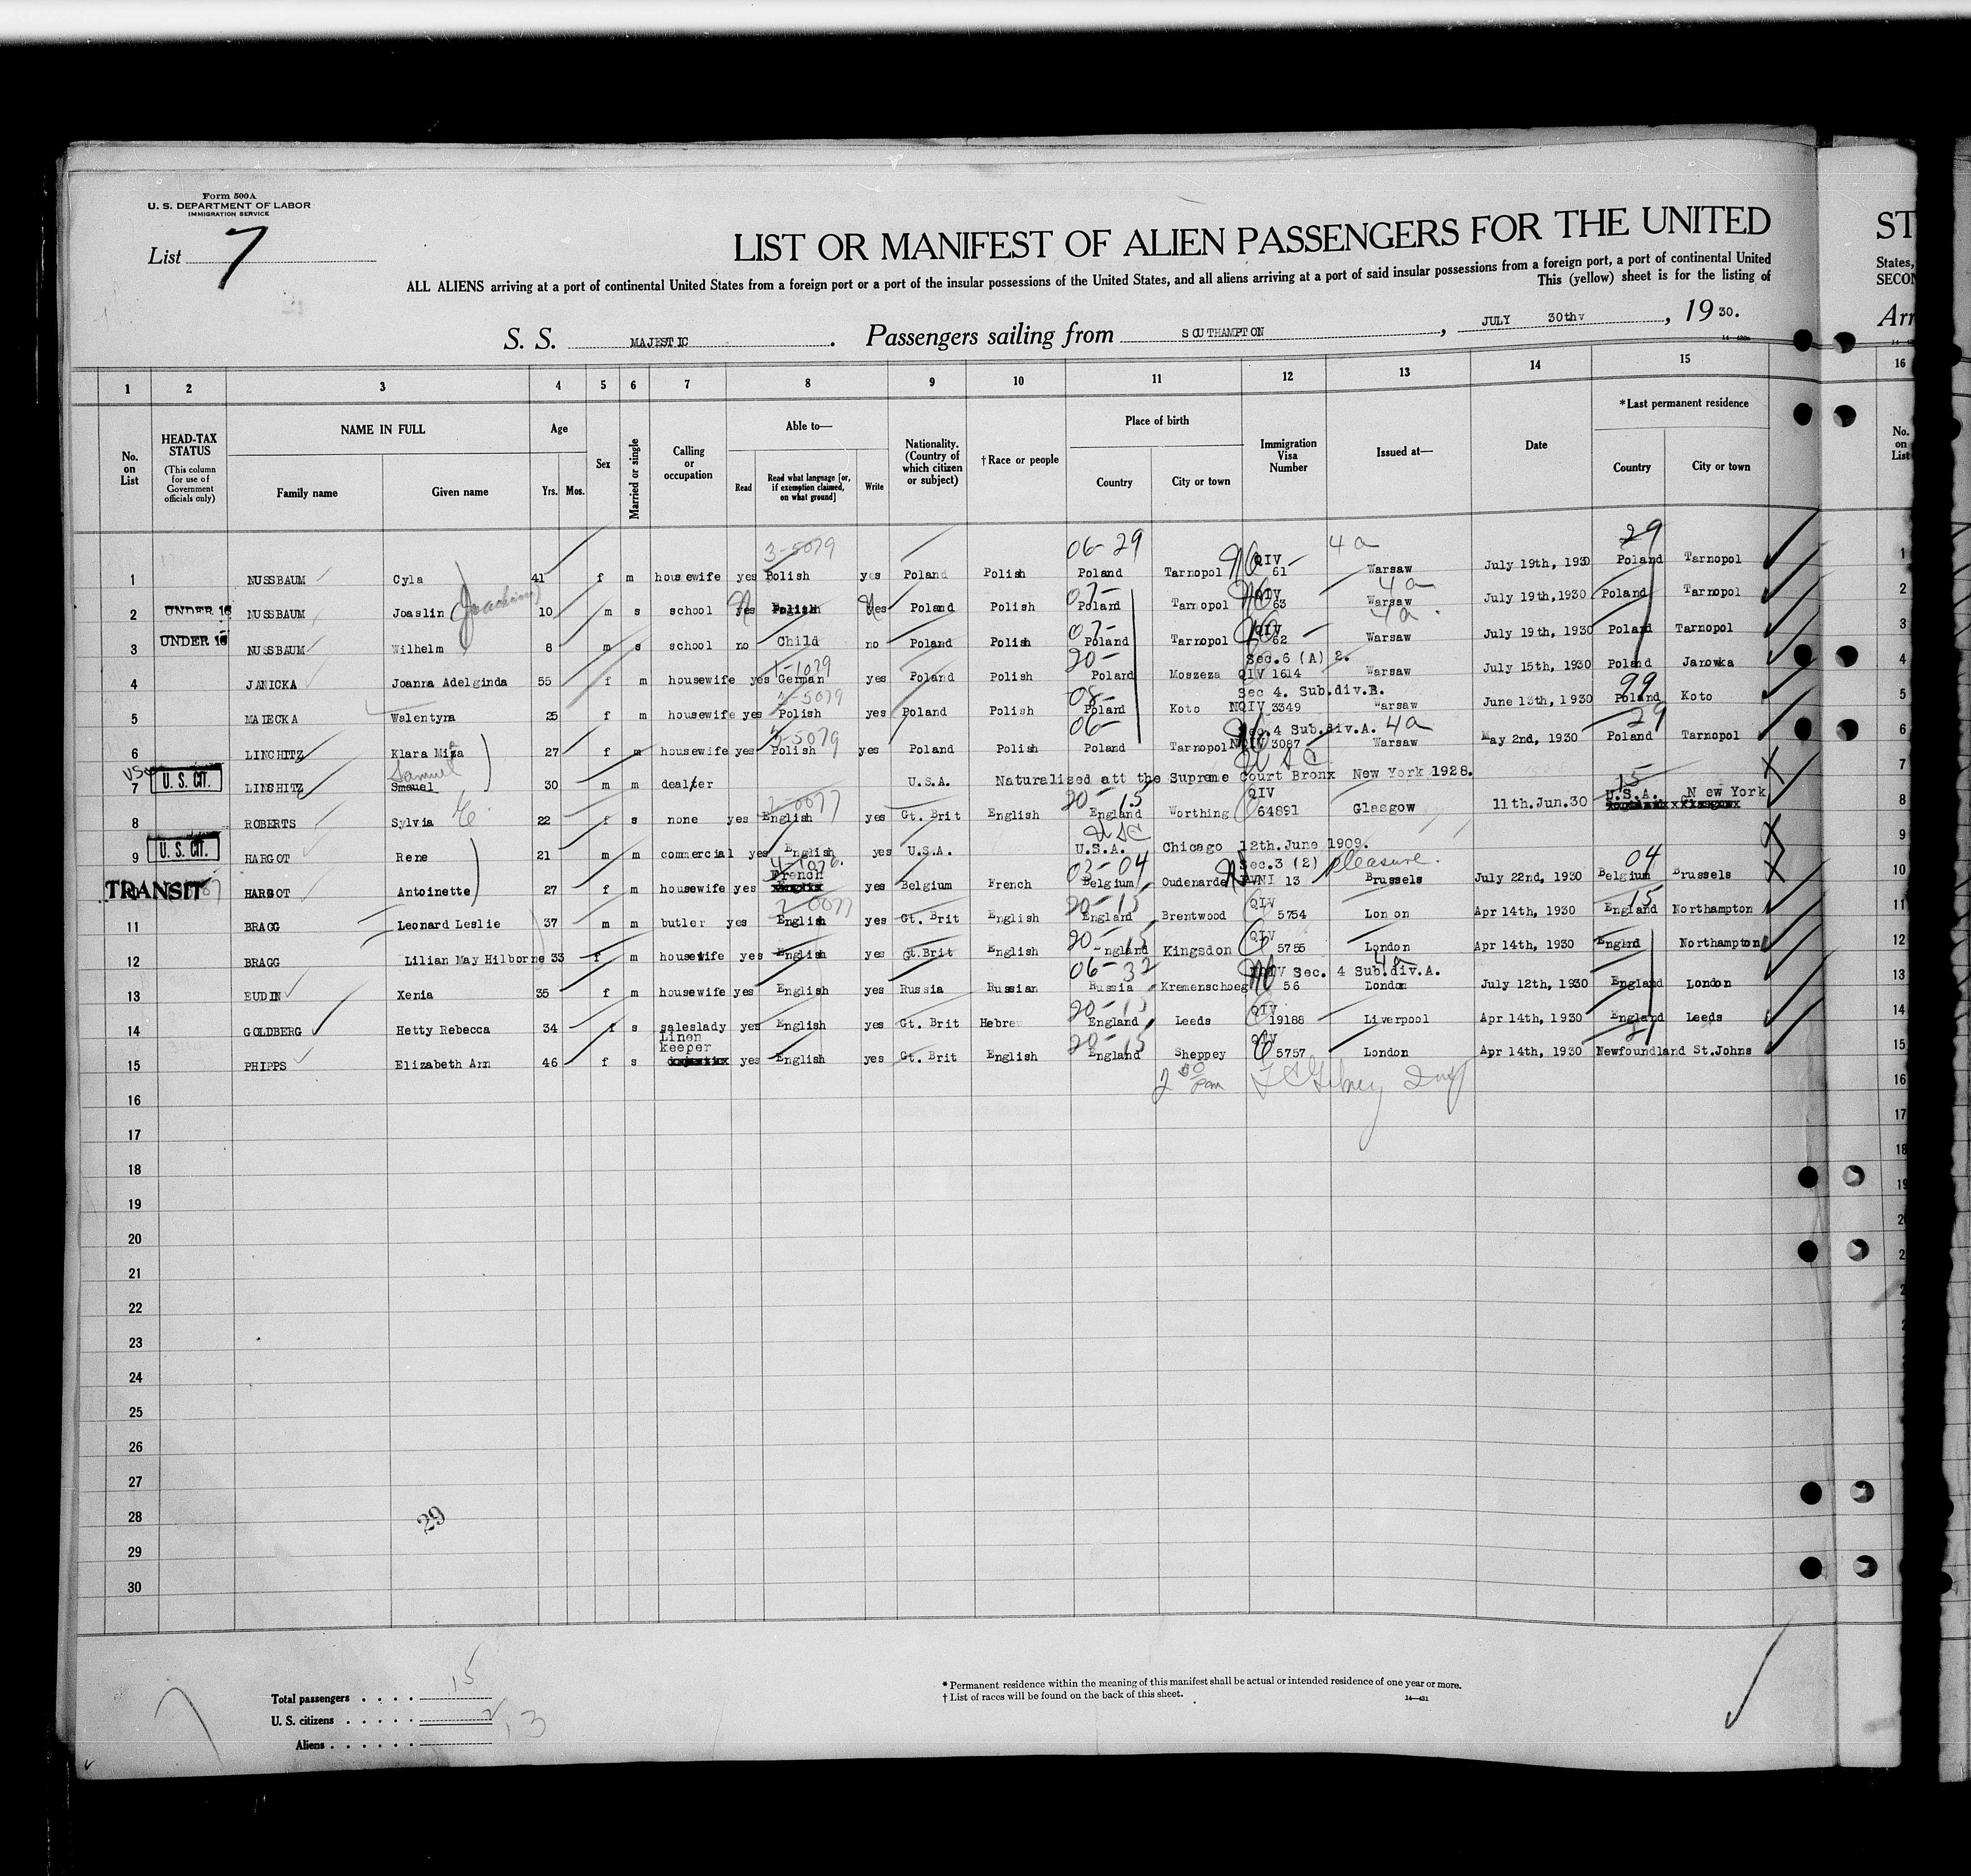 Form 500A
U. S. DEPARTMENT OF LABOR
IMMIGRATION SERVICE
List 7
LIST OR MANIFEST OF ALIEN PASSENGERS FOR THE UNITED
ST
ALL ALIENS arriving at a port of continental United States from a foreign port or a port of the insular possessions of the United States, and all aliens arriving at a port of said insular possessions from a foreign port, a port of continental United
States,
This (yellow) sheet is for the listing of
SECON
S. S. MAJESTIC . Passengers sailing from SOUTHAMPTON , JULY 30th , 19 30.
Arr
1 2 3 4 5 6 7 8 9 10 11 12 13 14 15 16
No. on List
HEAD-TAX STATUS
(This column for use of Government officials only)
NAME IN FULL
Family name Given name
Age
Yrs. Mos.
Sex
Married or single
Calling or occupation
Able to—
Read
Read what language [or, if exemption claimed, on what ground]
Write
Nationality. (Country of which citizen or subject)
†Race or people
Place of birth
Country City or town
Immigration Visa Number
Issued at—
Date
*Last permanent residence
Country City or town
No. on List
3-5079 06-29 4a 29
1 NUSSBAUM Cyla 41 f m housewife yes Polish yes Poland Polish Poland Tarnopol QIV 61 Warsaw July 19th, 1930 Poland Tarnopol 1
Joachim 07- 4a
2 UNDER 16 NUSSBAUM Joaslin 10 m s school yes Polish yes Poland Polish Poland Tarnopol QIV 63 Warsaw July 19th, 1930 Poland Tarnopol 2
07- 4a
3 UNDER 16 NUSSBAUM Wilhelm 8 m s school no Child no Poland Polish Poland Tarnopol QIV 62 Warsaw July 19th, 1930 Poland Tarnopol 3
1-1029 20- Sec.6 (A) 2.
4 JANICKA Joanna Adelginda 55 f m housewife yes German yes Poland Polish Poland Moszeza QIV 1614 Warsaw July 15th, 1930 Poland Janowka 4
3-5079 08- Sec 4. Sub.div.B. 99
5 MAIECKA Walentyna 25 f m housewife yes Polish yes Poland Polish Poland Koto NQIV 3349 Warsaw June 13th, 1930 Poland Koto 5
3-5079 06- Sec.4 Sub.div.A. 4a 29
6 LINCHITZ Klara Miza 27 f m housewife yes Polish yes Poland Polish Poland Tarnopol NQIV 3087 Warsaw May 2nd, 1930 Poland Tarnopol 6
USC Samuel USC
7 U. S. CIT. LINSHITZ Smauel 30 m m dealter U.S.A. Naturalised att the Supreme Court Bronx New York 1928. 7
U.S.A. New York
2-0077 20-15 QIV 15
8 ROBERTS Sylvia 22 f s none yes English yes Gt. Brit English England Worthing 64891 Glasgow 11th.Jun.30 8
USC
9 U. S. CIT. HARGOT Rene 21 m m commercial yes English yes U.S.A. U.S.A. Chicago 12th.June 1909. 9
4-1076. 03-04 Sec.3 (2) pleasure. 04
10 TRANSIT HARGOT Antoinette 27 f m housewife yes French yes Belgium French Belgium Oudenarde PVNI 13 Brussels July 22nd, 1930 Belgium Brussels 10
2-0077 20-15 QIV 15
11 BRAGG Leonard Leslie 37 m m butler yes English yes Gt. Brit English England Brentwood 5754 Lon on Apr 14th, 1930 England Northampton 11
20-15 QIV
12 BRAGG Lilian May Hilborne 33 f m housewife yes English yes Gt.Brit English England Kingsdon 5755 London Apr 14th, 1930 Englnd Northampton 12
06-32 NQIV Sec. 4 Sub.div.A. 4a
13 EUDIN Xenia 35 f m housewife yes English yes Russia Russian Russia Kremenschoeg 56 London July 12th, 1930 England London 13
20-15 QIV
14 GOLDBERG Hetty Rebecca 34 f s saleslady yes English yes Gt. Brit Hebrew England Leeds 19188 Liverpool Apr 14th, 1930 England Leeds 14
Linen keeper 20-15 QIV 21
15 PHIPPS Elizabeth Ann 46 f s yes English yes Gt. Brit English England Sheppey 5757 London Apr 14th, 1930 Newfoundland St.Johns 15
2 50 pm
16 16
17 17
18 18
19 19
20
21
22
23
24
25
26
27
28
29
30
29
Total passengers . . . . 15
U. S. citizens . . . . . 2
Aliens . . . . . . 13
* Permanent residence within the meaning of this manifest shall be actual or intended residence of one year or more.
† List of races will be found on the back of this sheet.
14—431